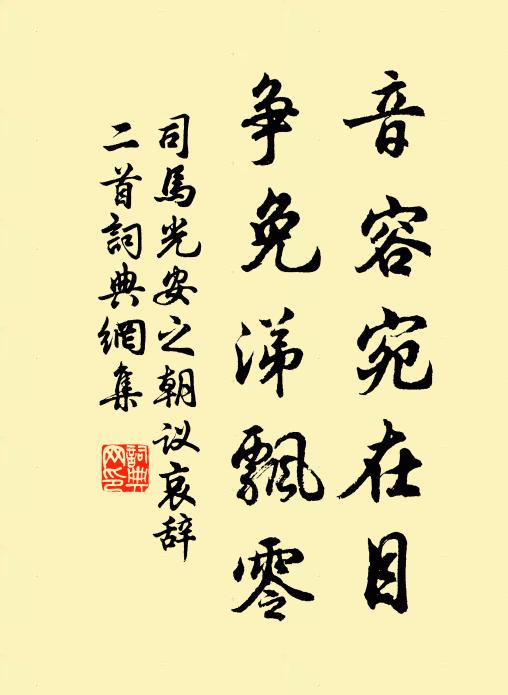 音容宛在目
争免涕飄零
司馬光安之朝议哀辞
二首詞典網集
詞典网印